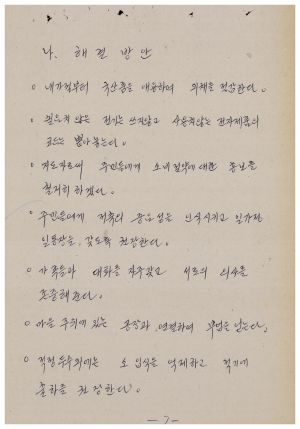 나. 해결방안
○ 내가정부터 국산품을 애용하여 외채를 절감한다.
○ 필요치 않는 전기는 쓰지않고 사용치않는 전자제품의
코드는 뽑아놓는다.
○ 지도자로써 주민들에게 소비절약에 대한 홍보를
철저히 하겠다.
○ 주민들에게 저축의 중요성을 인식시키고 일가정
일통장을 갖도록 권장한다.
○ 가족들과 대화를 자주갖고 서로의 의사를
존중해준다.
○ 마을 주위에 있는 공장과 연결하여 부업을 한다.
○ 적정두수외에는 소 입식을 억제하고 적기에
출하를 권장한다.
— 7 —